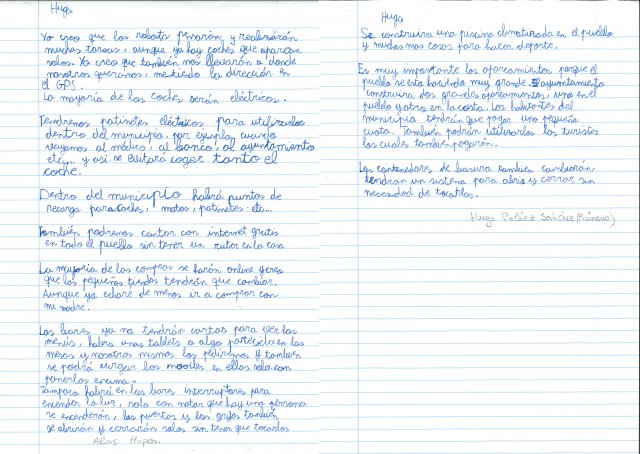 Hugo
Yo creo que los robots pensarán y realizarán
muchas tareas, aunque ya hay coches que aparcan
solos. Yo creo que también nos llevarán a donde
nosotros queramos, metiendo la dirección en
el GPS.
La mayoría de los coches serán eléctricos.
Tendremos patinetes eléctricos para utilizarlos
dentro del municipio, por ejemplo, cuando
vayamos al médico, al banco, al ayuntamiento
etc... y así se evitará coger tanto el
coche.
Dentro del municipio habrá puntos de
recarga para coches, motos, patinetes etc...
También podremos contar con internet gratis
en todo el pueblo sin tener un ruter en la casa
La mayoria de las compras se harán online y creo
que las pequeñas tiendas tendrán que cambiar.
Aunque yo echaré de menos ir a comprar con
mi madre.
Los bares ya no tendrán cartas para ver los
menús, habra unas tablets o algo parecida en las
mesas y nosotros mismos los pediremos y también
se podrá cargar los moviles en ellas solo con
ponerlos encima.
Tampoco habrá en los bares interruptores para
encender la luz, solo con notar que hay una persona
se encenderán, las puertas y los grifos también
se abrirán y cerrarán solos sin tener que tocarlos
Hugo
Se construira una piscina climatizada en el pueblo
y muchas mas cosas para hacer deporte.
Es muy importante los aparcamientos porque el
pueblo se esta haciendo muy grande. El ayuntamiento
construira dos grandes aparcamientos, uno en el
pueblo y otro en la costa. Los habitantes del
municipio tendrán que pagar una pequeña
cuota. También podrán utilizarlos los turistas
los cuales tambien pagarán.
Los contenedores de basura tambien cambiarán
tendran un sistema para abrir y cerrar sin
necesidad de tocarlos.
Hugo Peláez Sánchez (Primaria)